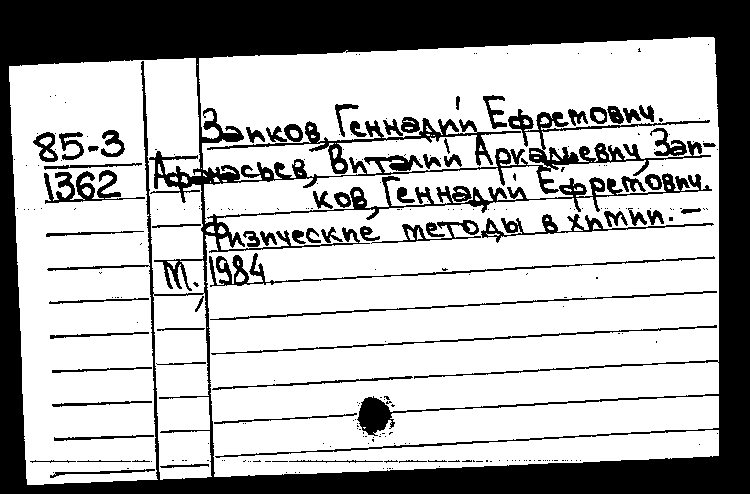 Заиков, Геннадий Ефремович.
85-3
Афанасьев, Виталий Аркадьевич, Заи-
1362
ков, Геннадий Ефремович.
Физические методы в химии. -
М., 1984.